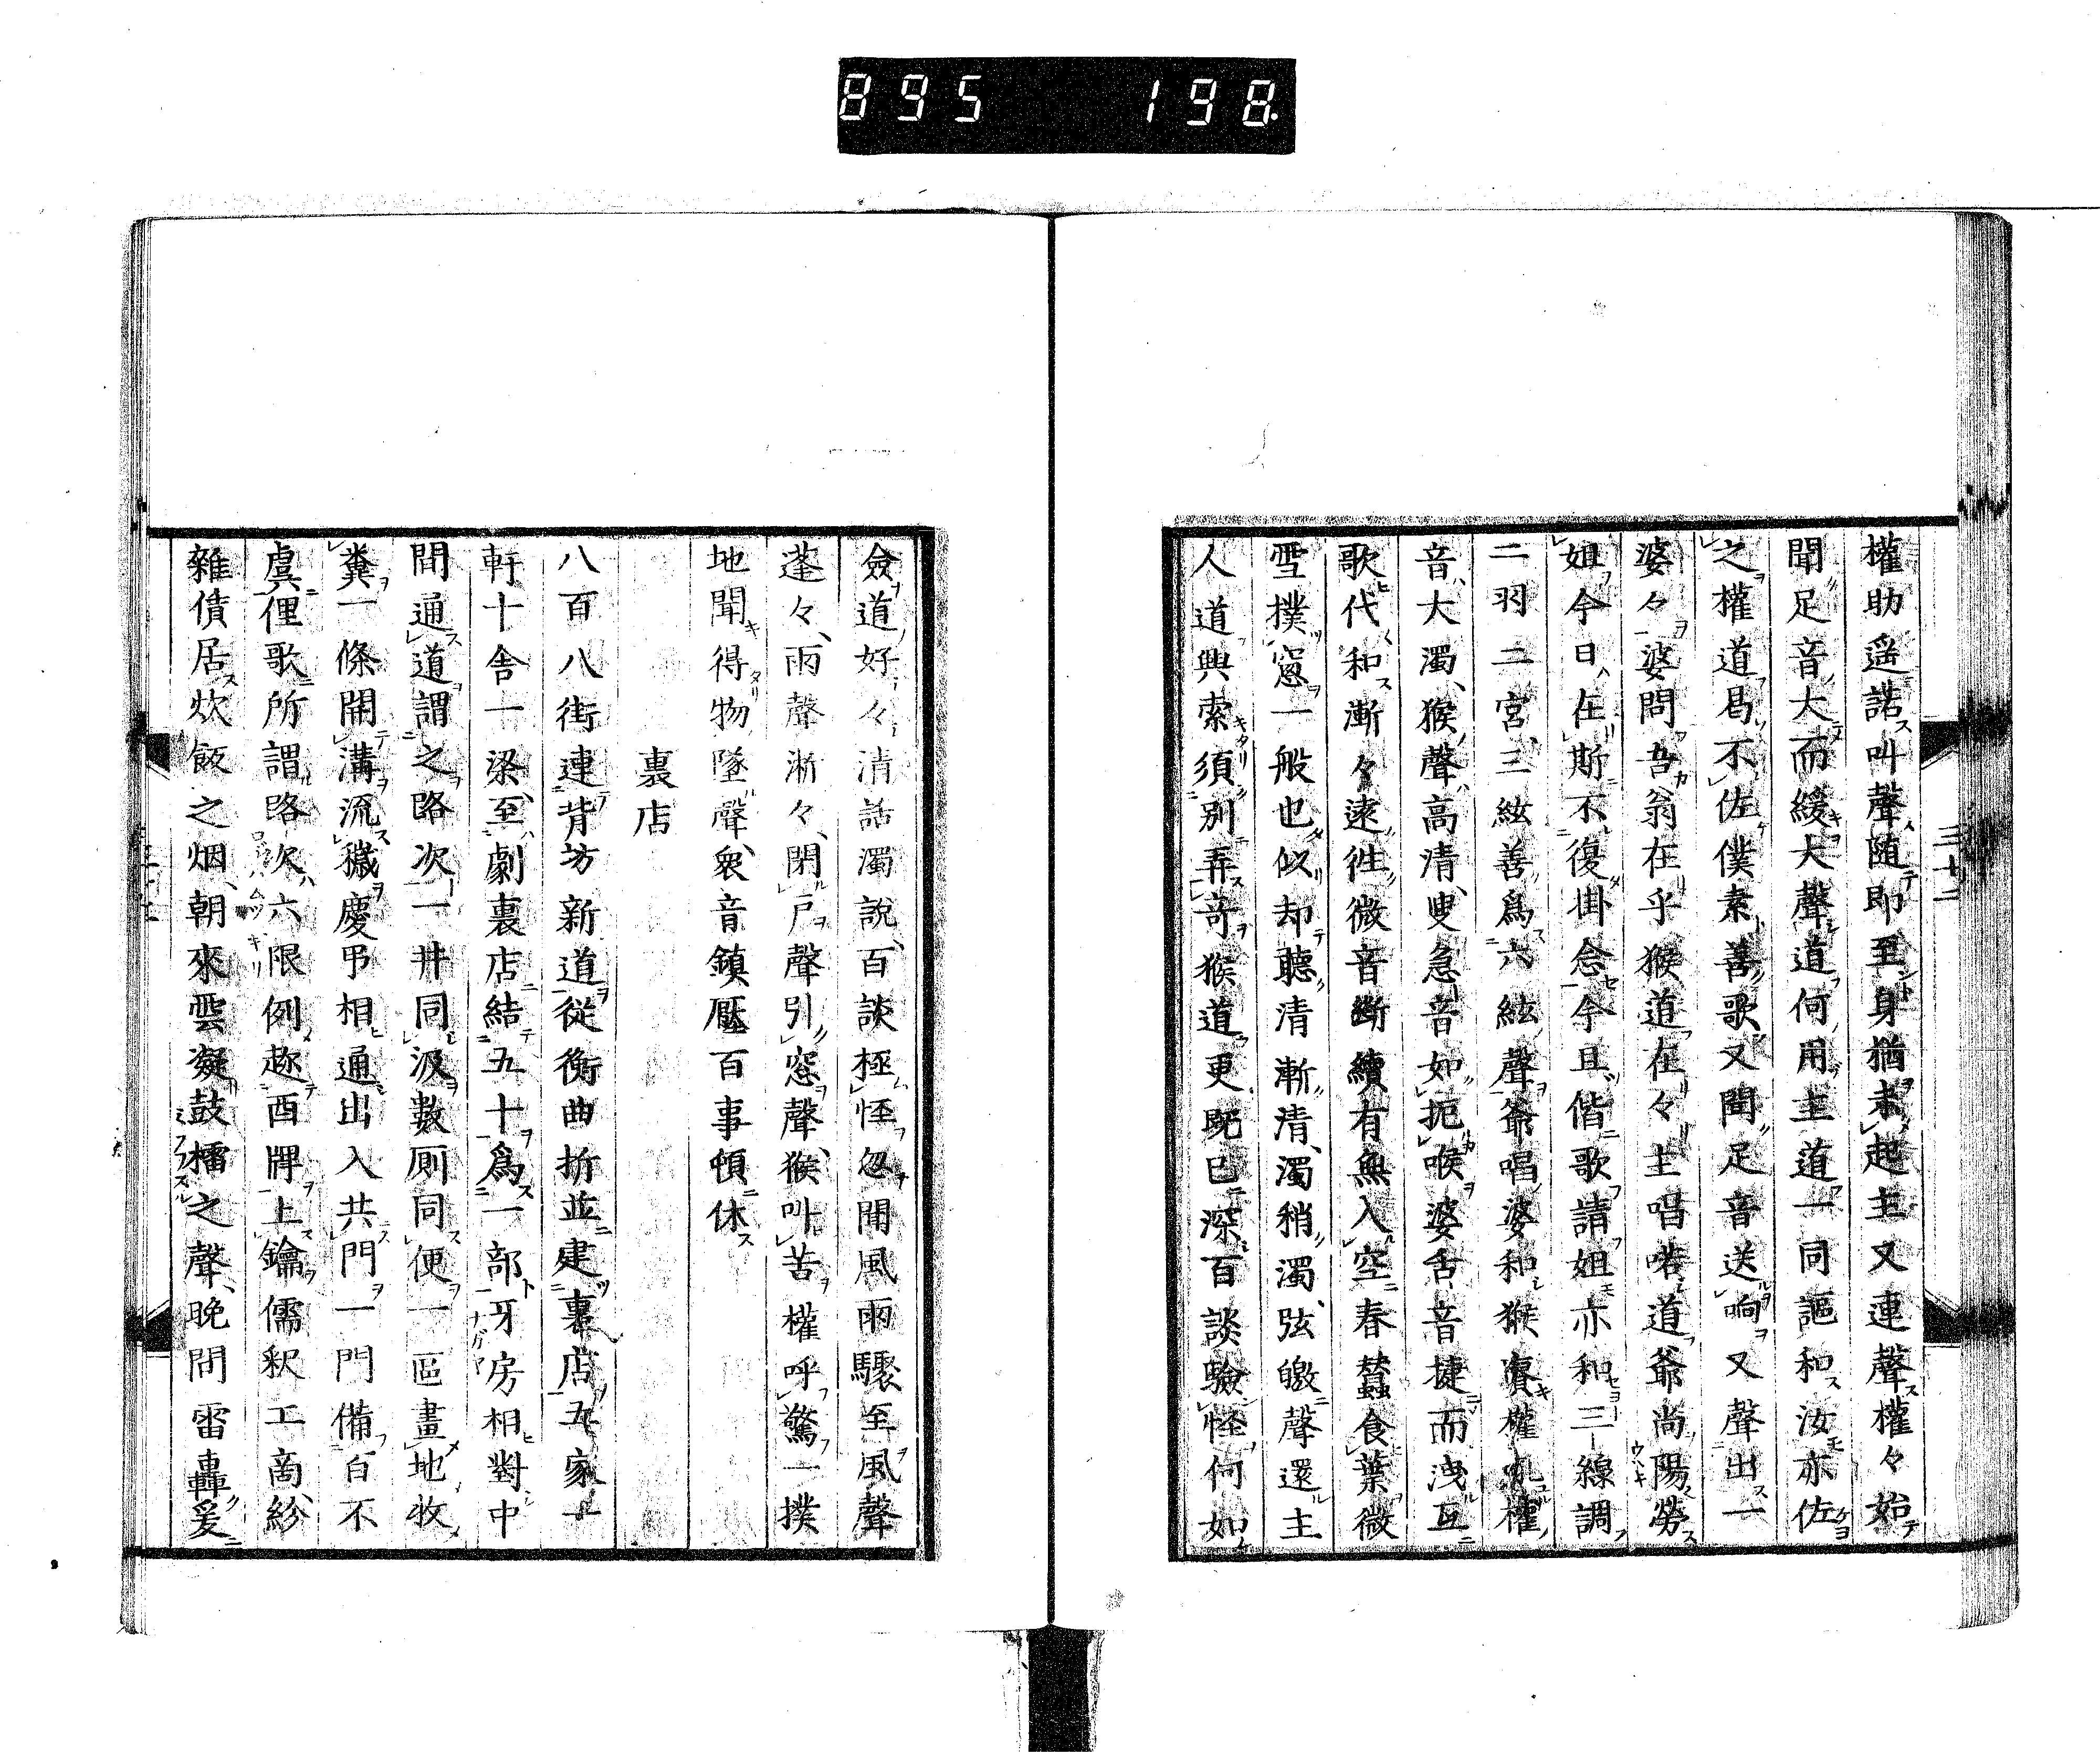 895 198
三十二
權助遥諾叫聲随即至身猶未起主又連聲權々始
聞足音大而緩大聲道何用主道一同謳和汝亦佐
之權道曷不佐僕素善歌又聞足音送响又聲出一
婆々婆問吾翁在乎猴道在々主唱喏道爺尚陽勞
姐今日在斯不復掛念今且偕歌請姐亦和三線調
二羽二宮三絃善爲六絃聲爺唱婆和猴賡權吼權
音大濁猴聲高清叟急音如扼喉婆舌音捷而洩互
歌代和漸々遠徃微音斷續有無入空春蠶食葉微
雪撲窻一般也似却聽清漸清濁稍濁弦皦聲還主
人道興索須別弄奇猴道更既已深百談驗怪何如
僉道好々清話濁說百談極怪忽聞風雨驟至風聲
蓬々雨聲淅々閉戶聲引窓聲猴叫苦權呼驚一撲
地聞得物墜聲衆音鎮壓百事頓休
裏店
八百八街連背坊新道從衡曲折並建裏店五家一
軒十舍一梁至劇裏店結五十爲一部牙房相對中
間通道謂之路次一井同汲數厠同便一區畫地收
糞一條開溝流穢慶弔相通出入共門一門備百不
虞俚歌所謂路次六限例趂酉牌上鑰儒釈工商紛
雜債居炊飯之烟朝來雲凝鼓橋之聲晩間雷轟爰